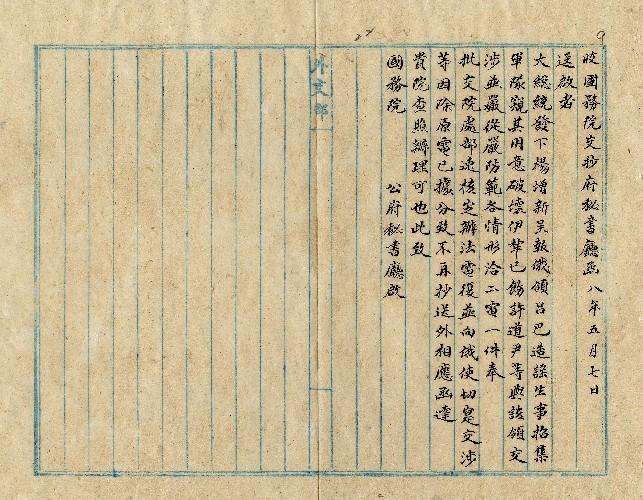 收國務院交抄府秘書廳函 八年五月七日
逕啟者
大總統發下楊增新呈報俄領呂巴造謠生事招集
軍隊窺其用意破壞伊犂已飭許道尹等與該領交
涉並嚴從嚴防範各情形洽二電一件奉
批交院處部速核定辦法電復並向俄使切寔交涉
等因除原電已據分致不再抄送外相應函達
貴院查照辦理可也此致
國務院 公府秘書廳啟
外交部
9